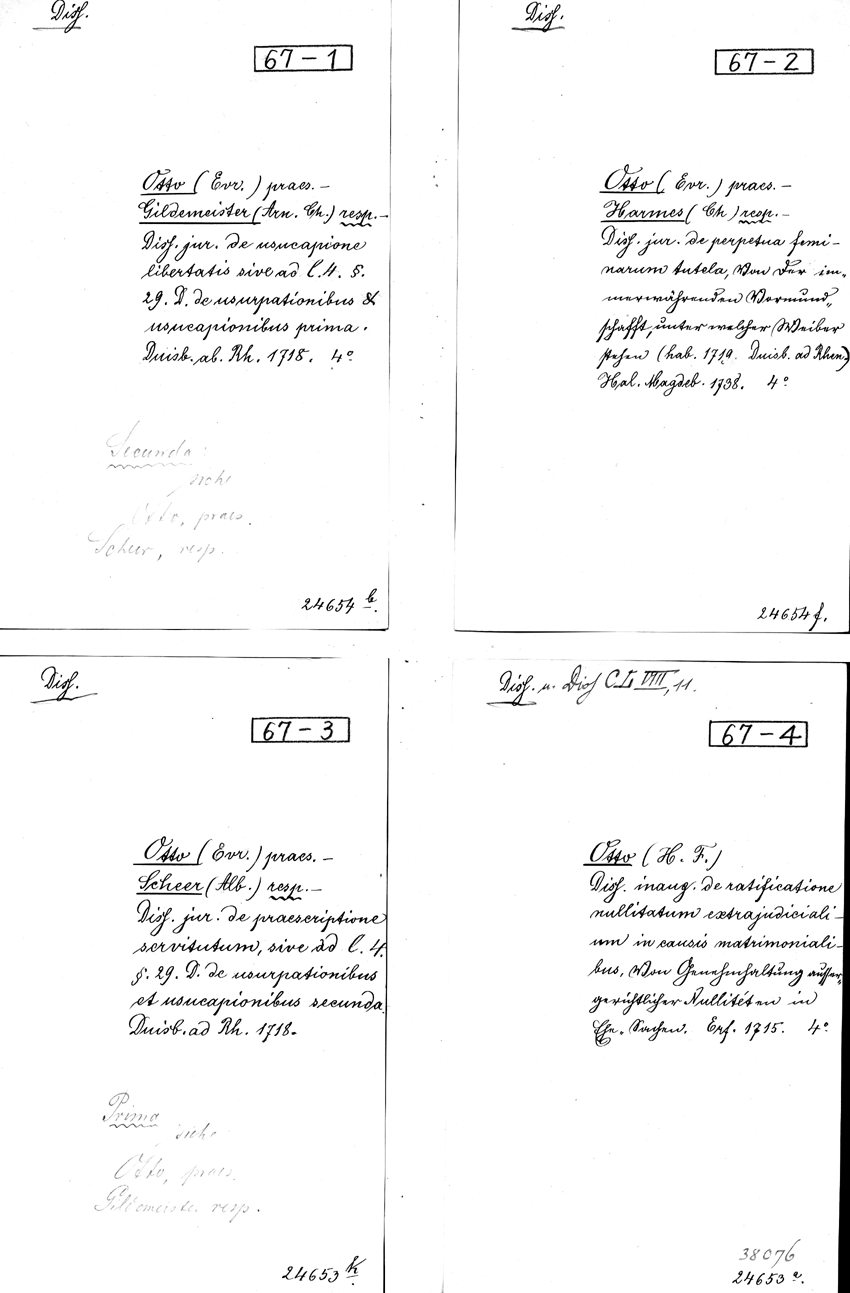 Diss.
67-1
Otto (Evr.) praes. –
Gildemeister (Arn. Ch.) resp. –
Diss. jur. de usucapione
libertatis sive ad l. 4. §.
29. D. de usurpationibus &
usucapionibus prima.
Duisb. ab. Rh. 1718. 4°
Secunda:
siehe
Otto, praes.
Scheer, resp.
24654 b.
Diss.
67-2
Otto (Evr.) praes. –
Harmes (Ch) resp. –
Diss. jur. de perpetua femi-
narum tutela, Von der im-
merwährenden Vormund-
schafft, unter welcher Weiber
stehen (hab. 1719. Duisb. ad Rhen)
Hal. Magdeb. 1738. 4°
24654 f.
Diss.
67-3
Otto (Evr.) praes. –
Scheer (Alb.) resp. –
Diss. jur. de praescriptione
servitutum, sive ad l. 4.
§. 29. D. de usurpationibus
et usucapionibus secunda
Duisb. ad Rh. 1718.
Prima
siehe
Otto, praes.
Gildemeister resp.
24653 k.
Diss. u. Diss CL VIII, 11.
67-4
Otto (H. F.)
Diss. inaug. de ratificatione
nullitatum extrajudiciali-
um in causis matrimoniali-
bus, Von Genehmhaltung ausser-
gerichtlicher Nullitäten in
Ehe-Sachen. Erf. 1715. 4°
38076
24653 a.